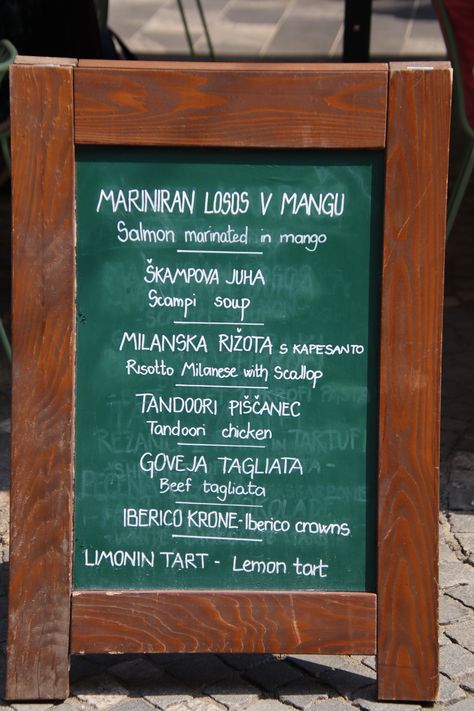 MARINIRAN LOSOS V MANGU
Salmon marinated in mango
ŠKAMPOVA JUHA
Scampi soup
MILANSKA RIŽOTA S KAPESANTO
Risotto Milanese with Scallop
TANDOORI PIŠČANEC
Tandoori chicken
GOVEJA TAGLIATA
Beef tagliata
IBERICO KRONE - Iberico crowns
LIMONIN TART - Lemon tart